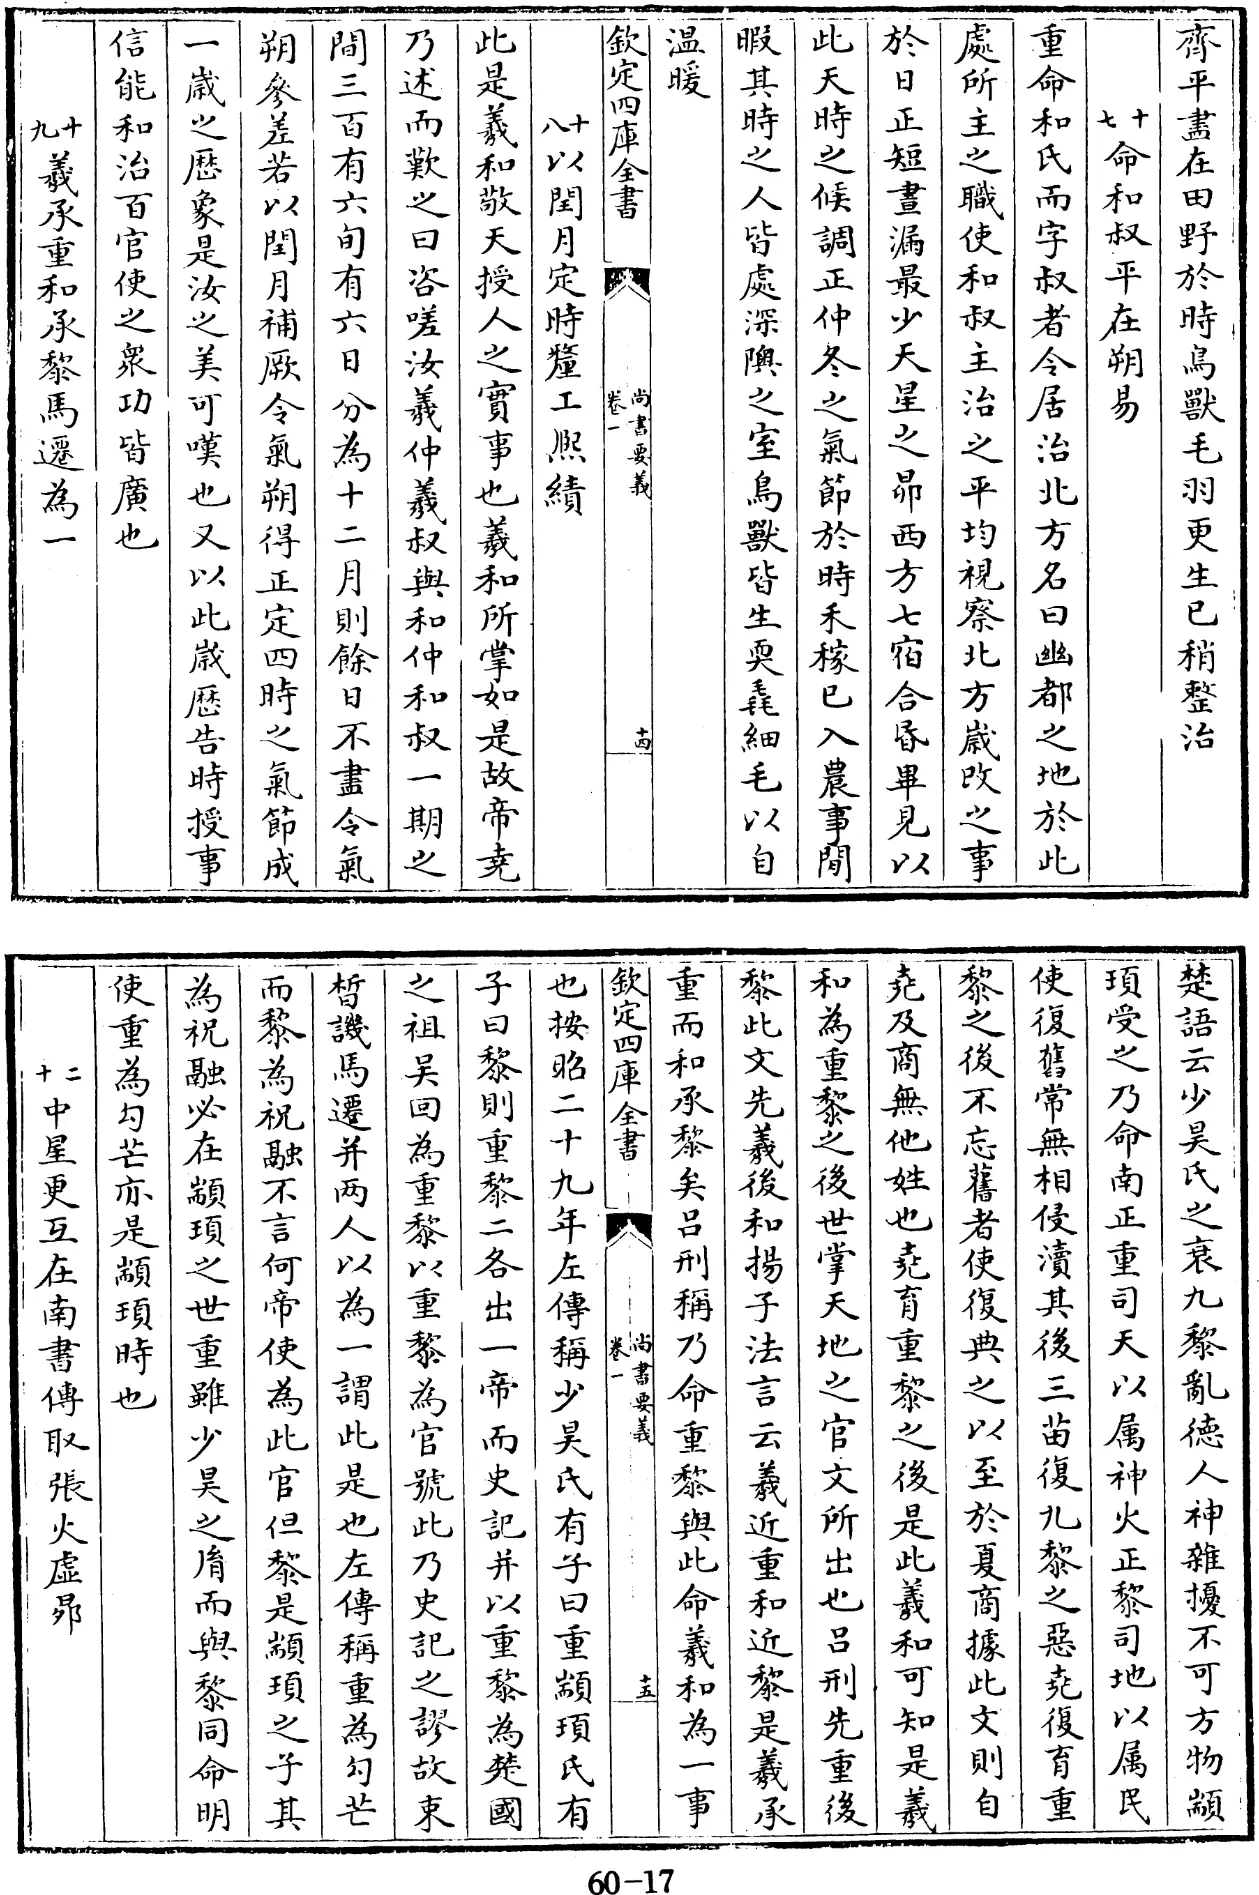 齊平盡在田野於時鳥獸毛羽更生已稍整治
十七命和叔平在朔易
重命和氏而字叔者令居治北方名曰幽都之地於此
處所主之職使和叔主治之平均視察北方歲改之事
於日正短晝漏最少天星之昴西方七宿合昏畢見以
此天時之候調正仲冬之氣節於時禾稼已入農事閒
暇其時之人皆處深隩之室鳥獸皆生耎毳細毛以自
温暖
欽定四庫全書
尚書要義
卷一
十四
十八以閏月定時釐工熙績
此是羲和敬天授人之實事也羲和所掌如是故帝堯
乃述而歎之曰咨嗟汝羲仲羲叔與和仲和叔一期之
間三百有六旬有六日分為十二月則餘日不盡令氣
朔參差若以閏月補厥令氣朔得正定四時之氣節成
一歲之歷象是汝之美可嘆也又以此歲歷告時授事
信能和治百官使之衆功皆廣也
十九羲承重和承黎馬遷為一
楚語云少昊氏之衰九黎亂德人神雜擾不可方物顓
頊受之乃命南正重司天以属神火正黎司地以属民
使復舊常無相侵瀆其後三苗復九黎之惡堯復育重
黎之後不忘舊者使復典之以至於夏商據此文則自
堯及商無他姓也堯育重黎之後是此羲和可知是羲
和為重黎之後世掌天地之官文所出也吕刑先重後
黎此文先羲後和揚子法言云羲近重和近黎是羲承
重而和承黎矣吕刑稱乃命重黎與此命羲和為一事
欽定四庫全書
尚書要義
卷一
十五
也按昭二十九年左傳稱少昊氏有子曰重顓頊氏有
子曰黎則重黎二各出一帝而史記并以重黎為楚國
之祖吴回為重黎以重黎為官號此乃史記之謬故束
晳譏馬遷并两人以為一謂此是也左傳稱重為勾芒
而黎為祝融不言何帝使為此官但黎是顓頊之子其
為祝融必在顓頊之世重雖少昊之胄而與黎同命明
使重為勾芒亦是顓頊時也
二十中星更互在南書傳取張火虛昴
60-17